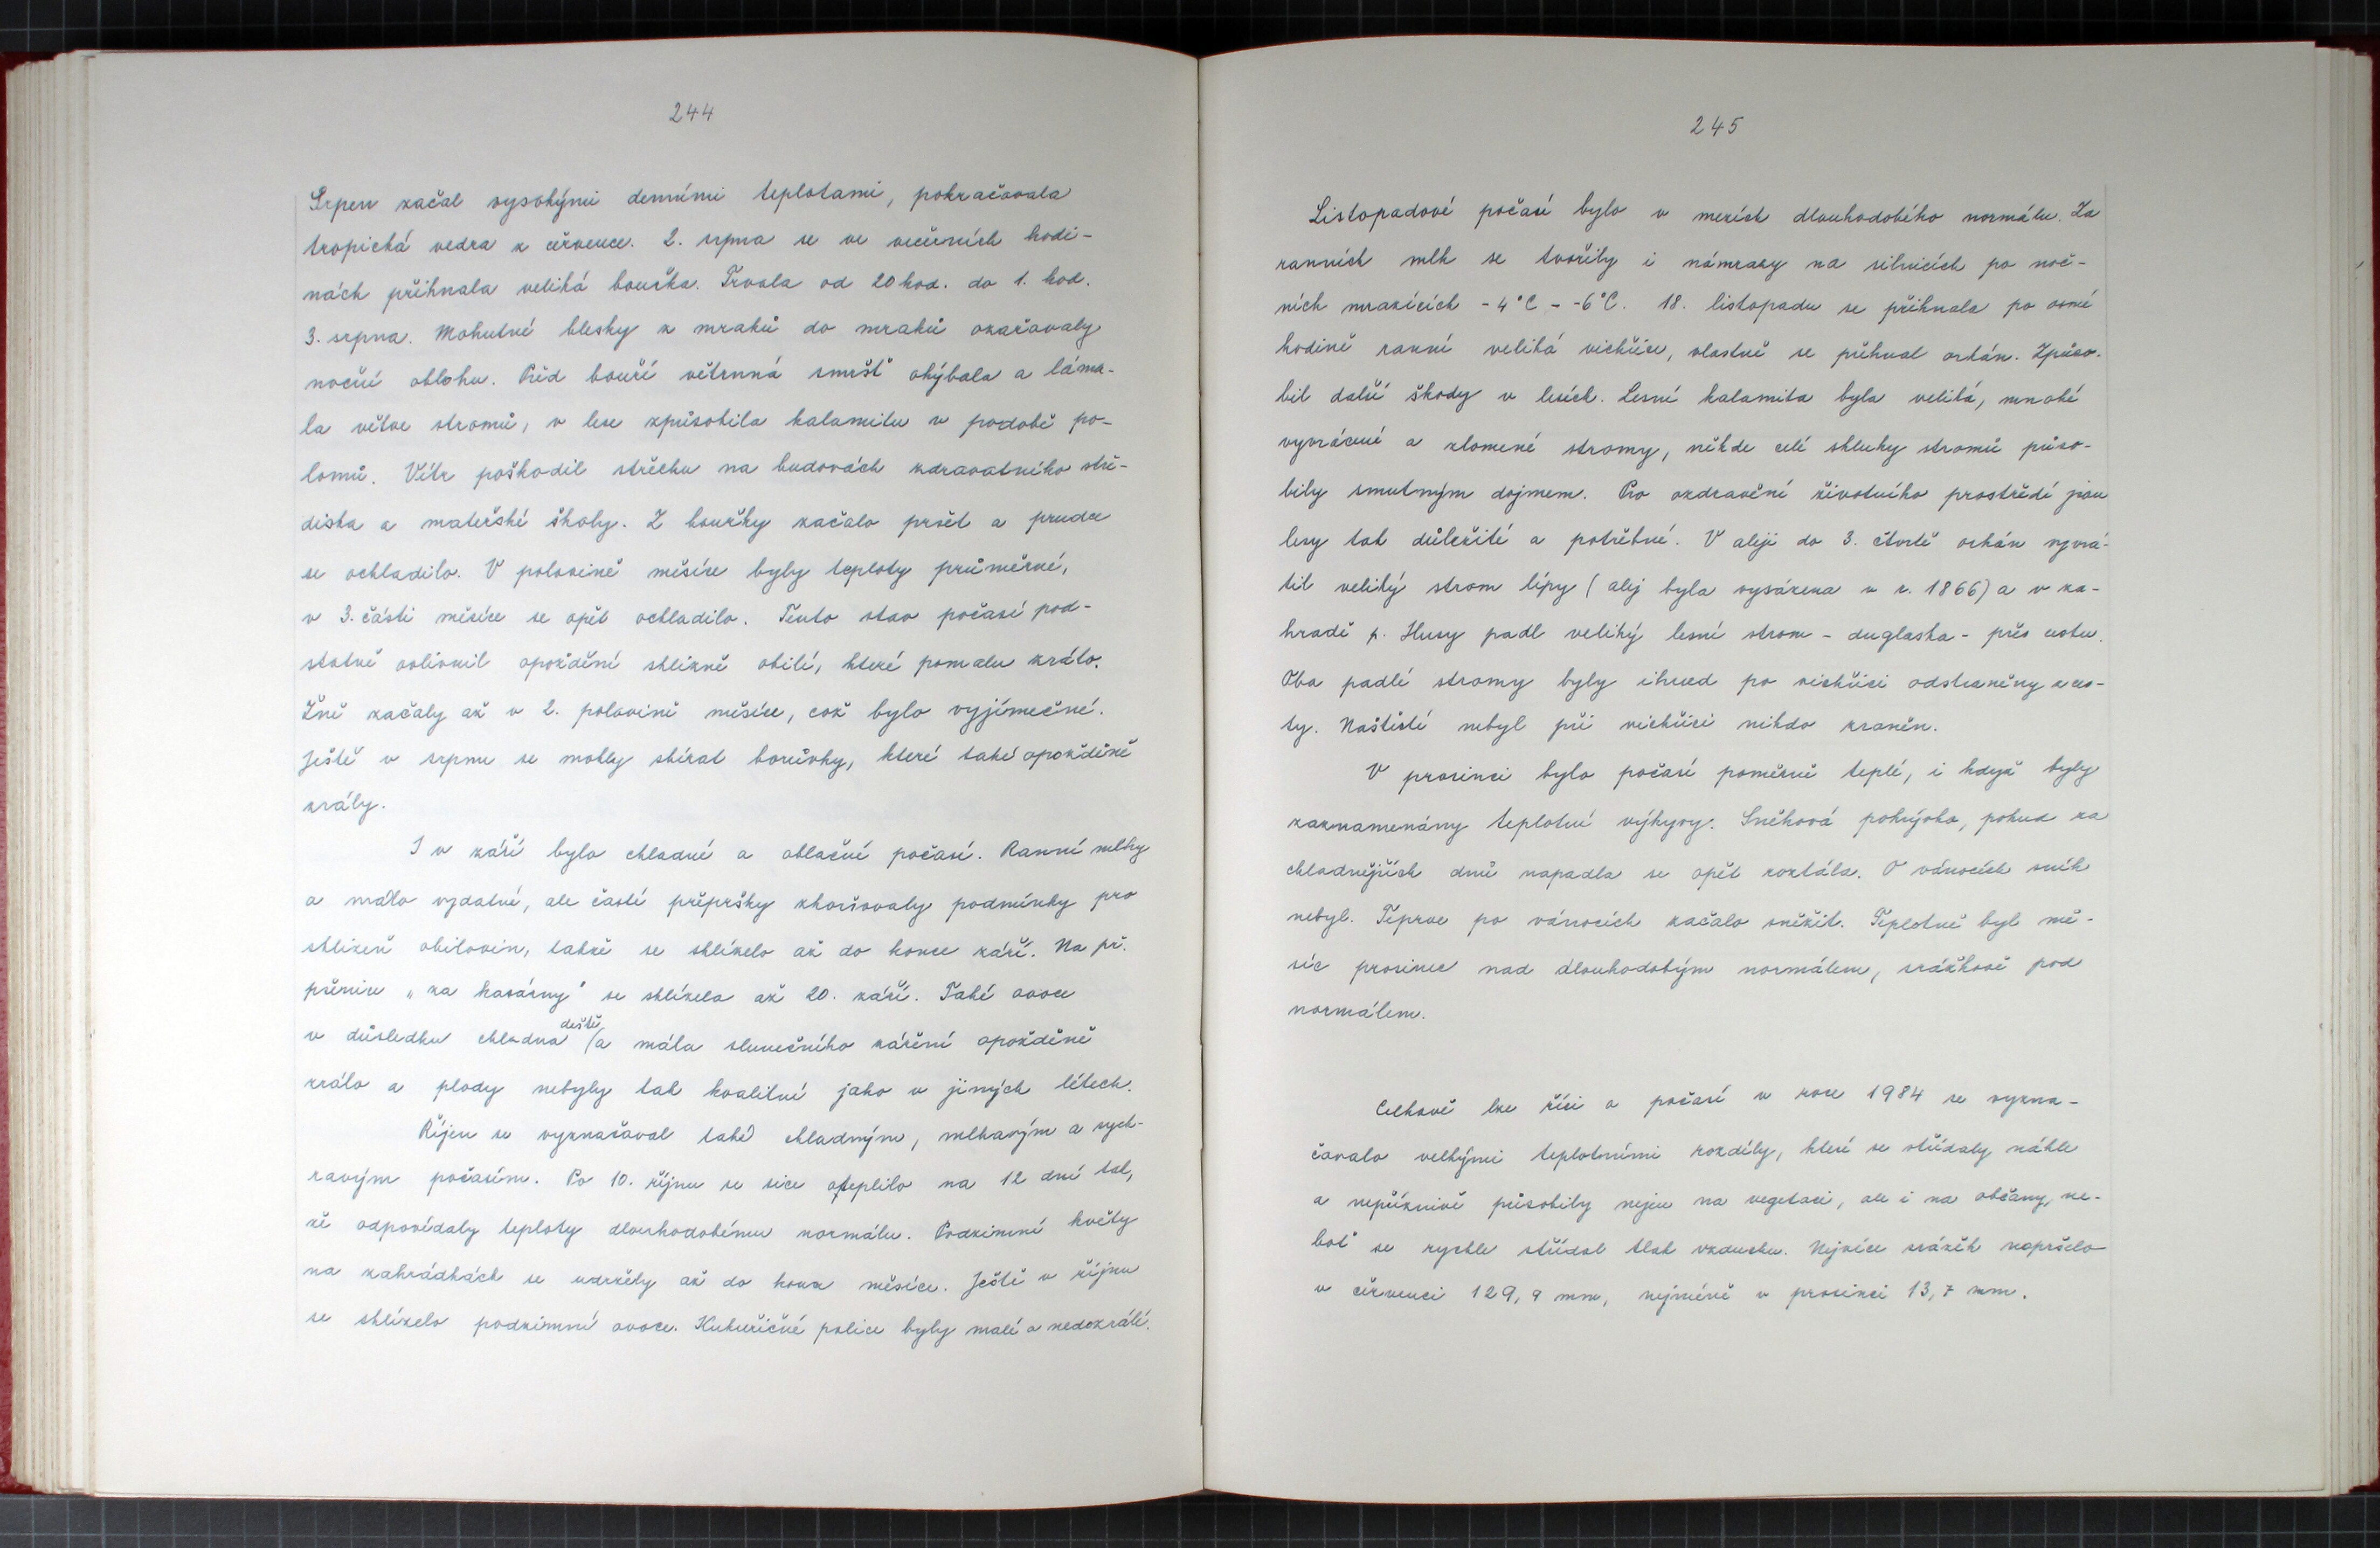 244
Srpen začal vysokými denními teplotami, pokračovala
tropická vedra z července. 2. srpna se ve večerních hodi-
nách přihnala veliká bouřka. Trvala od 20 hod. do 1. hod.
3. srpna. Mohutné blesky z mraků do mraků ozařovaly
noční oblohu. Před bouří větrnná smršť ohýbala a láma-
la větve stromů, v lese způsobila kalamitu v podobě po-
lomů. Vítr poškodil střechu na budovách zdravotního stře-
diska a mateřské školy. Z bouřky začalo pršet a prudce
se ochladilo. V polovině měsíce byly teploty průměrné,
v 3. části měsíce se opět ochladilo. Tento stav počasí pod-
statně ovlivnil opoždění sklizně obilí, které pomalu zrálo.
Žně začaly až v 2. polovině měsíce, což bylo vyjímečné.
Ještě v srpnu se mohly sbírat borůvky, které také opožděně
zrály.
I v září bylo chladné a oblačné počasí. Ranní mlhy
a málo vydatné, ale časté přepršky zhoršovaly podmínky pro
sklizeň obilovin, takže se sklízelo až do konce září. Na př.
pšenice „za kasárny" se sklízela až 20. září. Také ovoce
v důsledku chladna /deště a mála slunečního záření opožděně
zrálo a plody nebyly tak kvalitní jako v jiných létech.
Říjen se vyznačoval také chladným, mlhavým a sych-
ravým počasím. Po 10. říjnu se sice oteplilo na 12 dní tak,
že odpovídaly teploty dlouhodobému normálu. Podzimní květy
na zahrádkách se udržely až do konce měsíce. Ještě v říjnu
se sklízelo podzimní ovoce. Kukuřičné palice byly malé a nedozrálé.
245
Listopadové počasí bylo v mezích dlouhodobého normálu. Za
ranních mlh se tvořily i námrazy na silnicích po noč-
ních mrazících -4°C - -6°C. 18. listopadu se přihnala po osmé
hodině ranní veliká vichřice, vlastně se přehnal orkán. Způso-
bil další škody v lesích. Lesní kalamita byla veliká, mnohé
vyvrácené a zlomené stromy, někde celé shluky stromů půso-
bily smutným dojmem. Pro ozdravění životního prostředí jsou
lesy tak důležité a potřebné. V aleji do 3. čtvrtě orkán vyvrá-
til veliký strom lípy (alej byla vysázena v r. 1866) a v za-
hradě p. Husy padl veliký lesní strom - duglaska - přes cestu.
Oba padlé stromy byly ihned po vichřici odstraněny z ces-
ty. Naštěstí nebyl při vichřici nikdo zraněn.
V prosinci bylo počasí poměrně teplé, i když byly
zaznamenány teplotní výkyvy. Sněhová pokrývka, pokud za
chladnějších dnů napadla se opět roztála. O vánocích sníh
nebyl. Teprve po vánocích začalo sněžit. Teplotně byl mě-
síc prosinec nad dlouhodobým normálem, srážkově pod
normálem.
Celkově lze říci a počasí v roce 1984 se vyzna-
čovalo velkými teplotními rozdíly, které se střídaly náhle
a nepříznivě působily nejen na vegetaci, ale i na občany, ne-
boť se rychle střídal tlak vzduchu. Nejvíce srážek napršelo
v červenci 129,9 mm, nejméně v prosinci 13,7 mm.